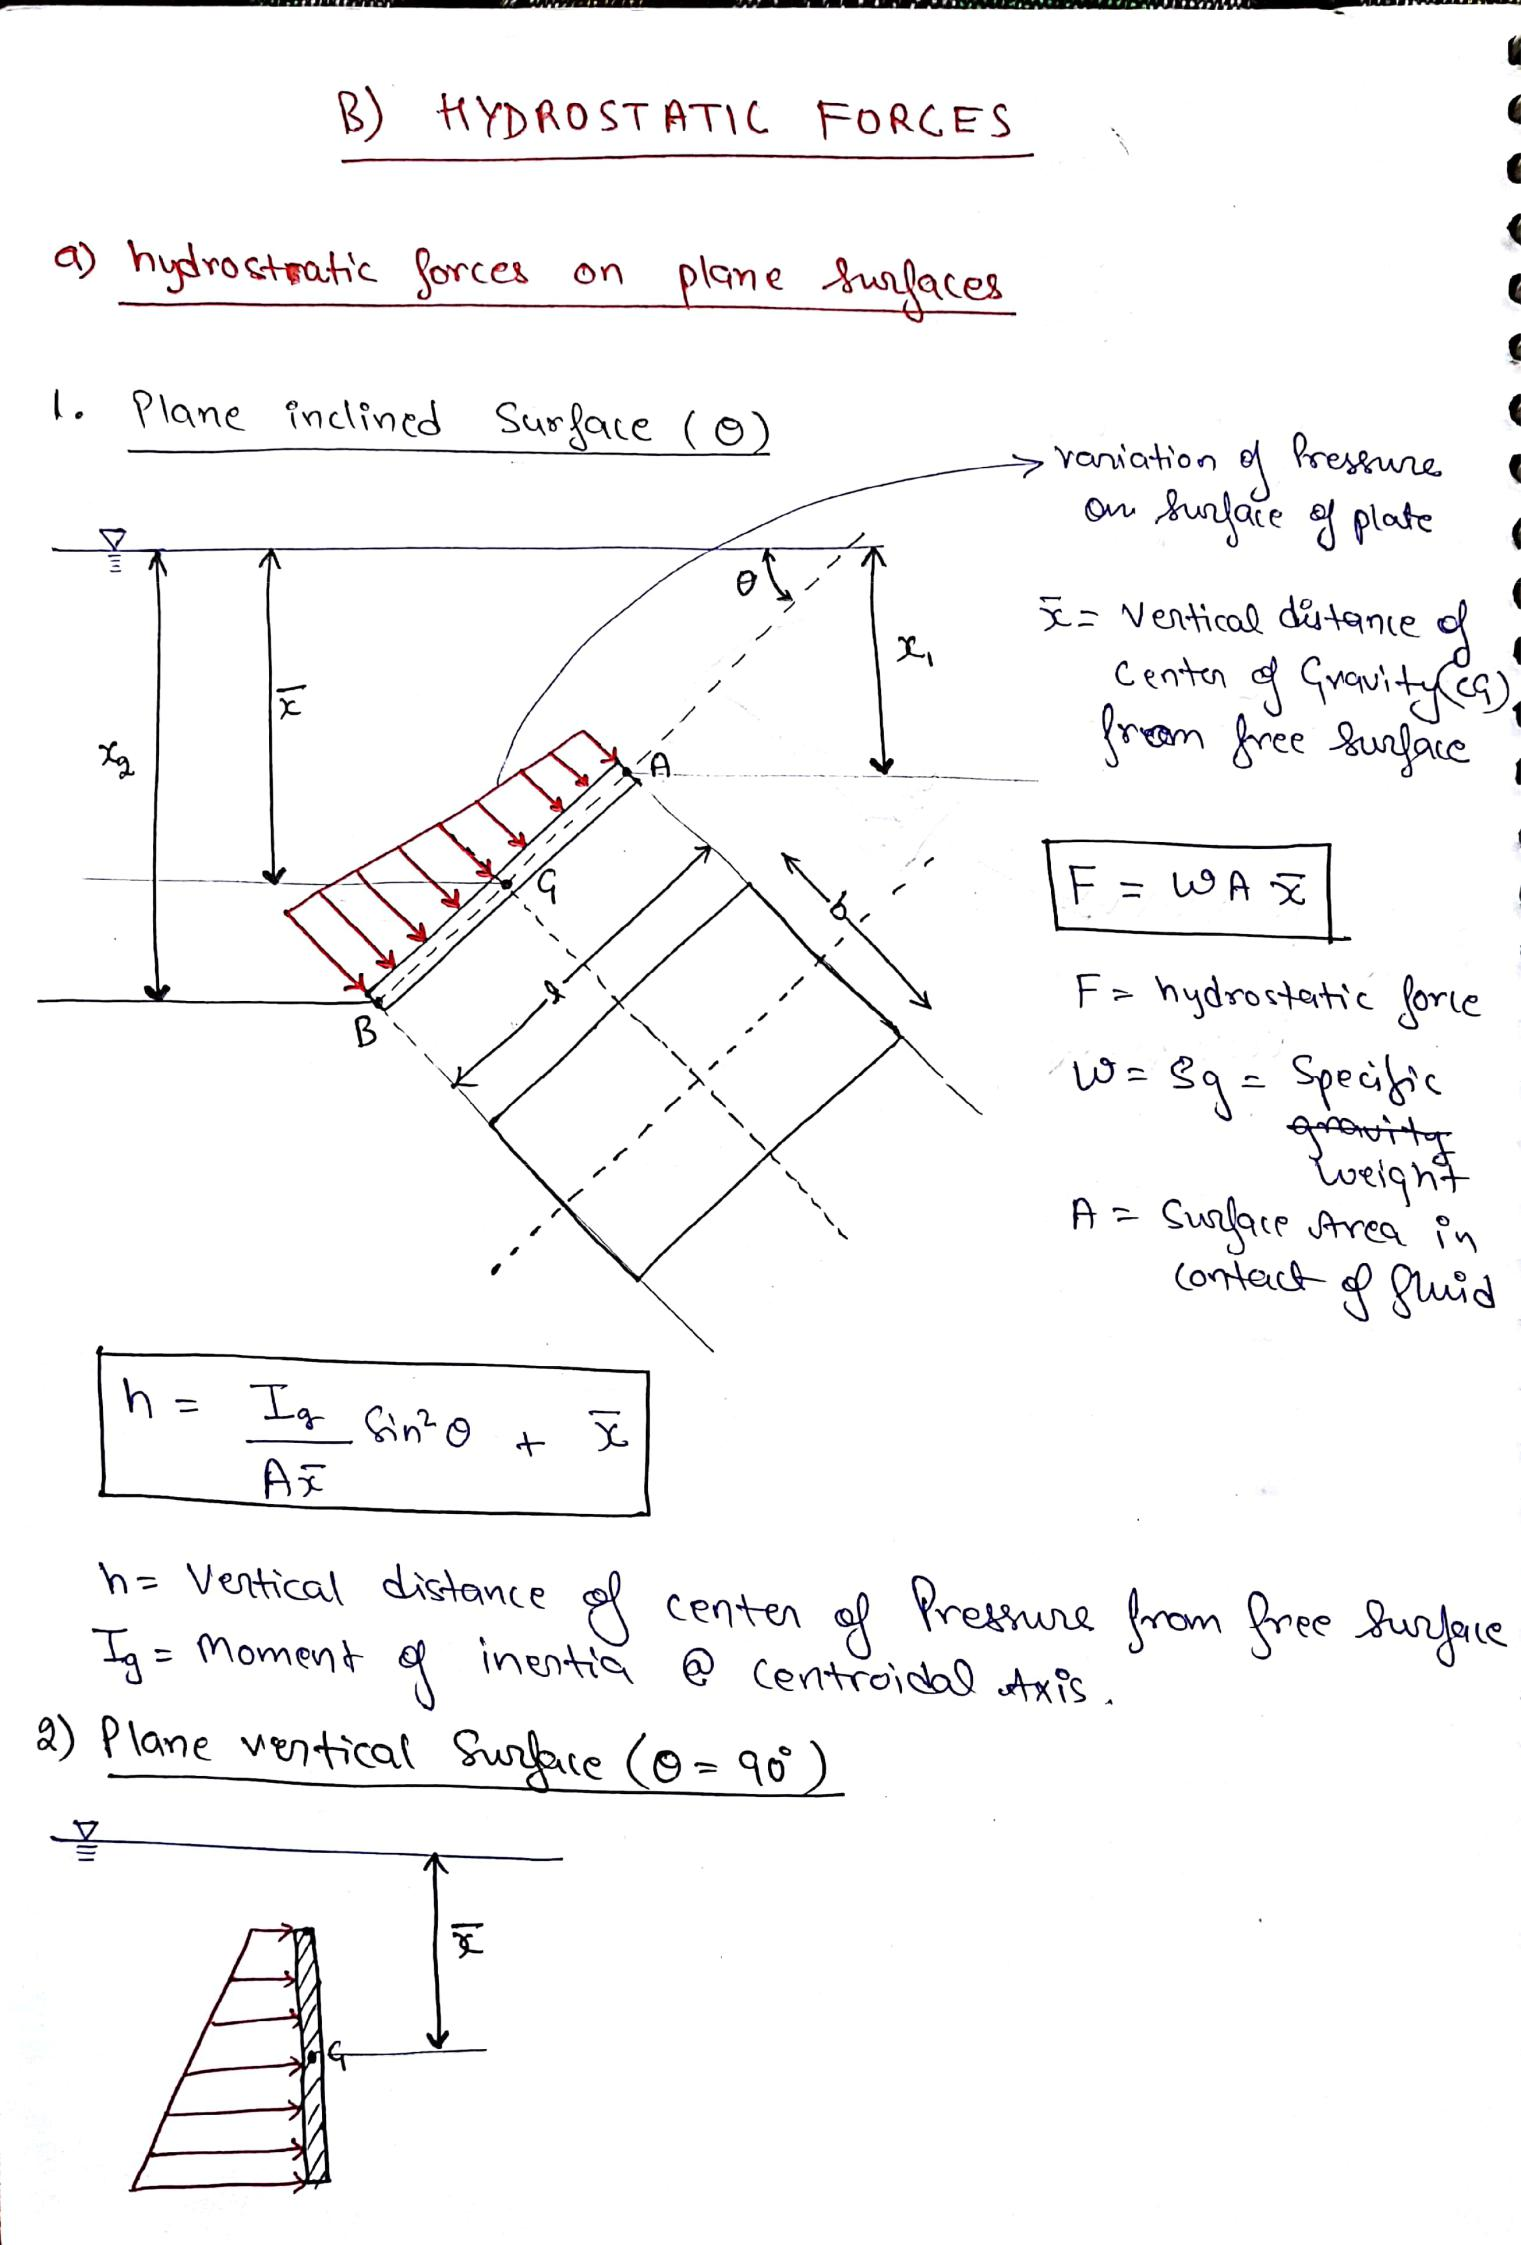 B) HYDROSTATIC FORCES
a) hydrostatic forces on plane surfaces
1. Plane inclined Surface (θ)
→ variation of Pressure
on surface of plate
θ
x₁
x̄
x₂
A
G
B
l
b
x̄ = Vertical distance of
center of Gravity (CG)
from free surface
F = W A x̄
F = hydrostatic force
W = ρg = Specific
gravity
weight
A = Surface Area in
contact of fluid
h = Ig/Ax̄ Sin²θ + x̄
h = Vertical distance of center of Pressure from free surface
Ig = Moment of inertia @ centroidal Axis.
2) Plane vertical Surface (θ = 90°)
x̄
G